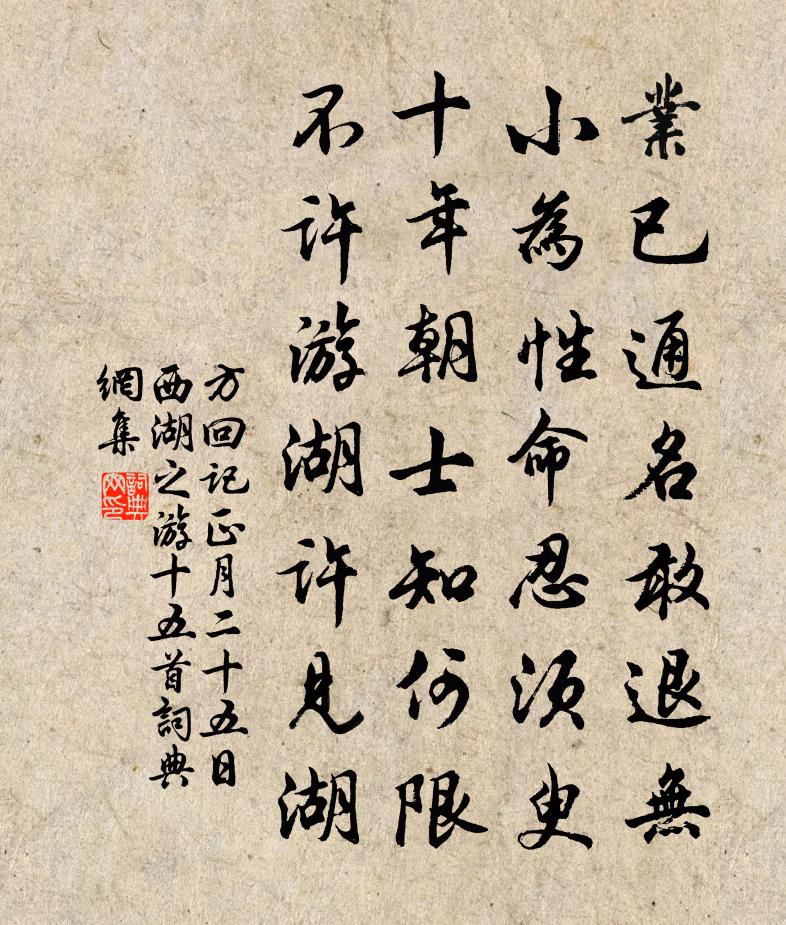 業已通名敢退無
小為性命忍須臾
十年朝士知何限
不許游湖許見湖
方回記正月二十五日
西湖之游十五首詞典
網集
詞典網印